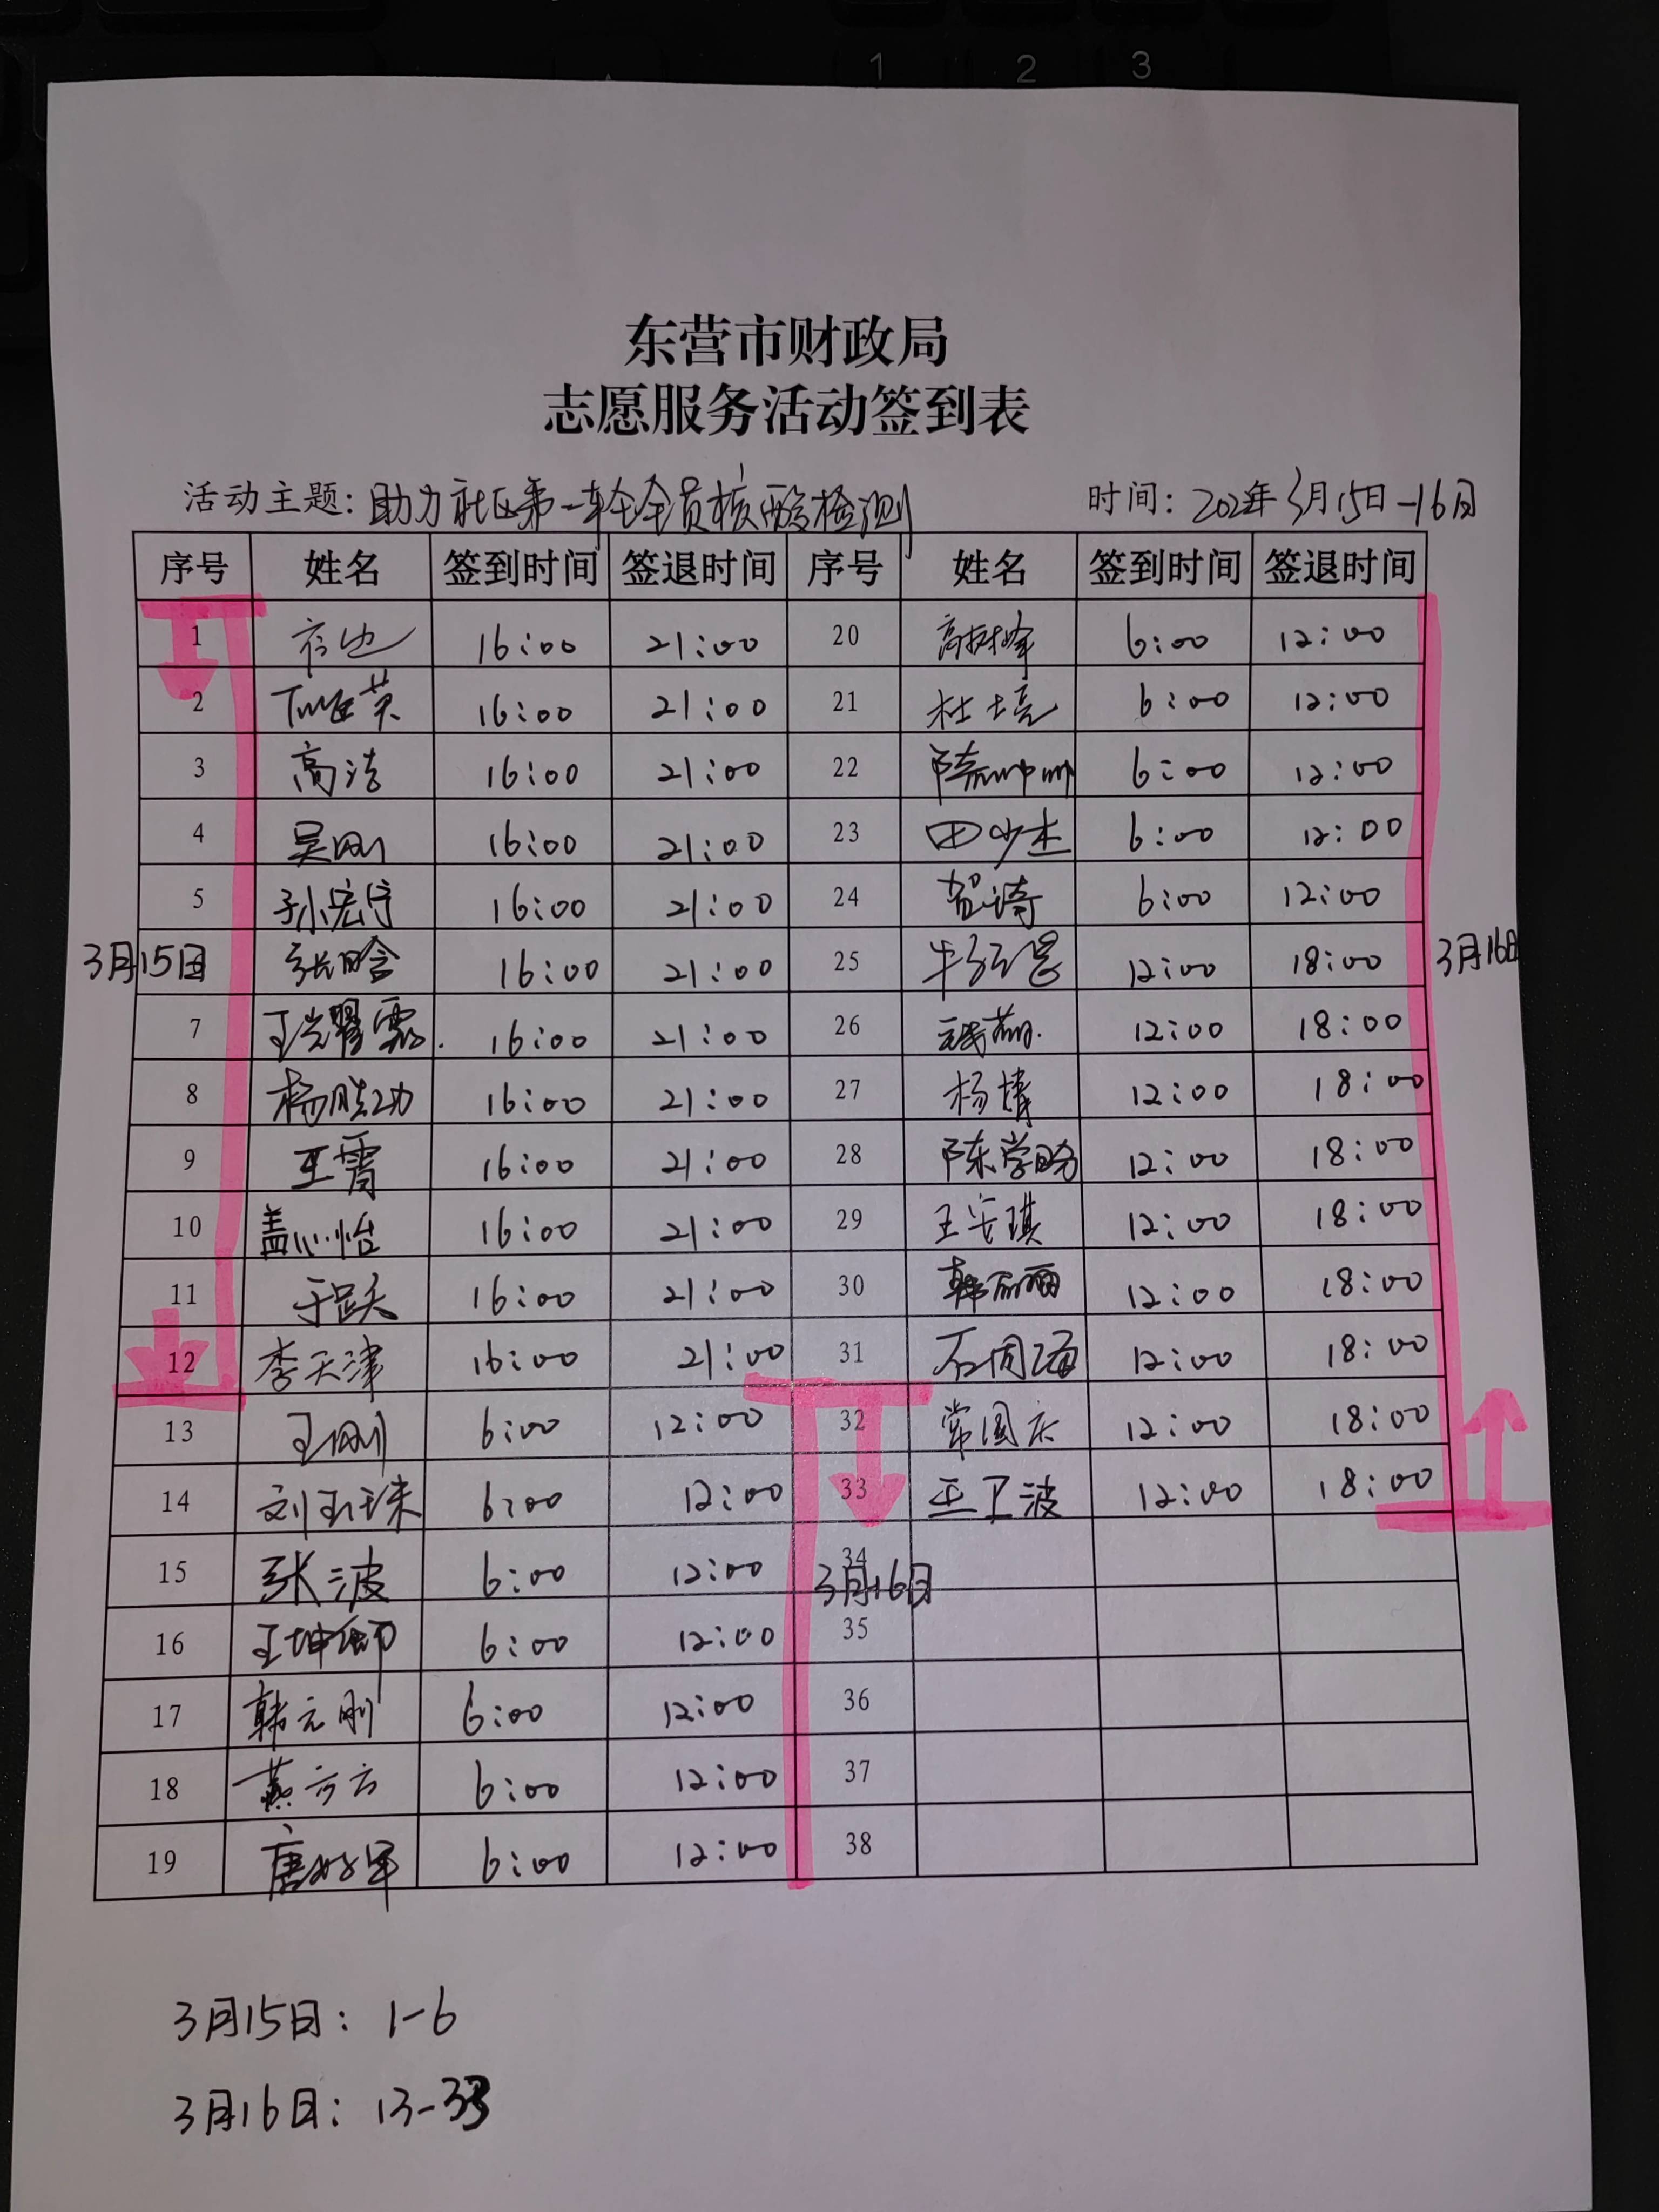 1 2 3
东营市财政局
志愿服务活动签到表
活动主题：助力社区第一轮全员核酸检测 时间：2022年3月15日-16日
序号 姓名 签到时间 签退时间 序号 姓名 签到时间 签退时间
1 16:00 21:00 20 高树峰 6:00 12:00
2 英 16:00 21:00 21 杜培亮 6:00 12:00
3 高洁 16:00 21:00 22 陈 6:00 12:00
4 吴刚 16:00 21:00 23 田少杰 6:00 12:00
5 孙宏宇 16:00 21:00 24 贺琦 6:00 12:00
3月15日 张晗 16:00 21:00 25 牛 12:00 18:00 3月16日
7 王耀霖 16:00 21:00 26 燕 12:00 18:00
8 杨胜功 16:00 21:00 27 杨婧 12:00 18:00
9 王霄 16:00 21:00 28 陈学明 12:00 18:00
10 盖心怡 16:00 21:00 29 王安琪 12:00 18:00
11 于跃 16:00 21:00 30 韩丽丽 12:00 18:00
12 李天津 16:00 21:00 31 石同海 12:00 18:00
13 王刚 6:00 12:00 32 常国庆 12:00 18:00
14 刘玉珠 6:00 12:00 33 王卫波 12:00 18:00
15 张波 6:00 12:00 34
3月16日
16 王坤 6:00 12:00 35
17 韩元刚 6:00 12:00 36
18 燕方云 6:00 12:00 37
19 唐好军 6:00 12:00 38
3月15日：1-6
3月16日：13-33